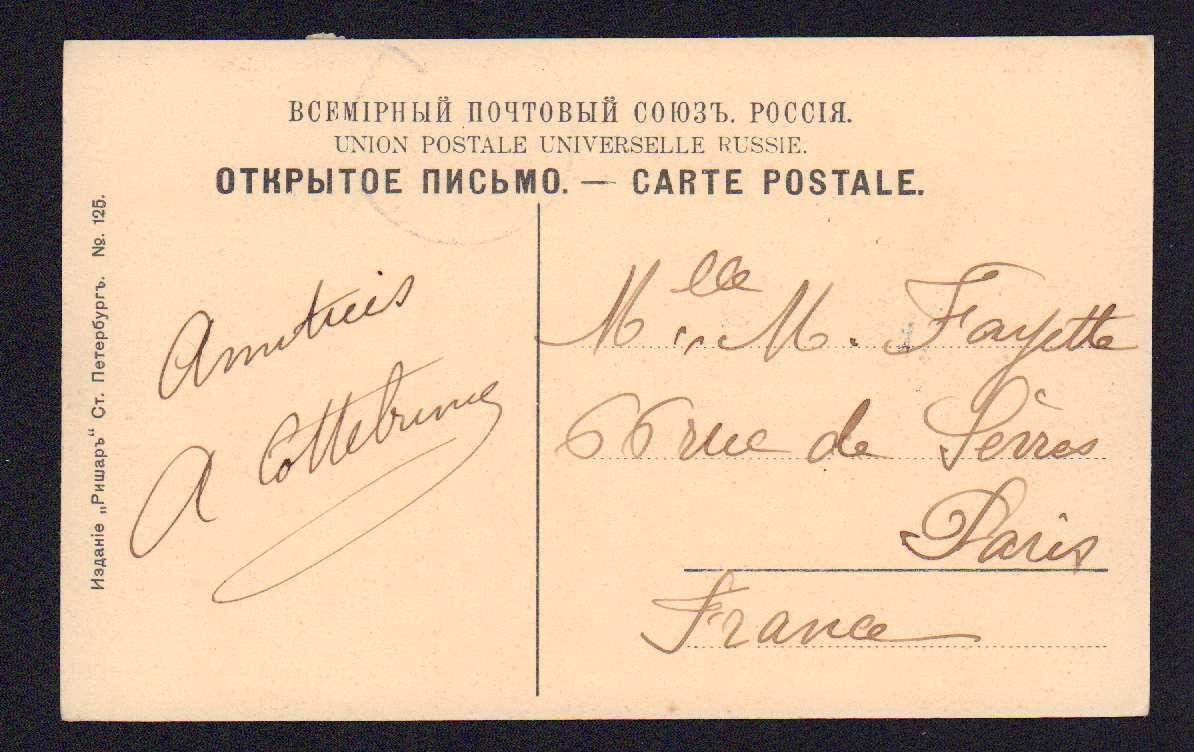 ВСЕМІРНЫЙ ПОЧТОВЫЙ СОЮЗЪ. РОССІЯ.
UNION POSTALE UNIVERSELLE RUSSIE.
ОТКРЫТОЕ ПИСЬМО. — CARTE POSTALE.
Изданіе „Ришаръ“ Ст. Петербургъ. №. 125.
Amitiés
A Cottebrune
Mlle M. Fayette
66 rue de Sèvres
Paris
France